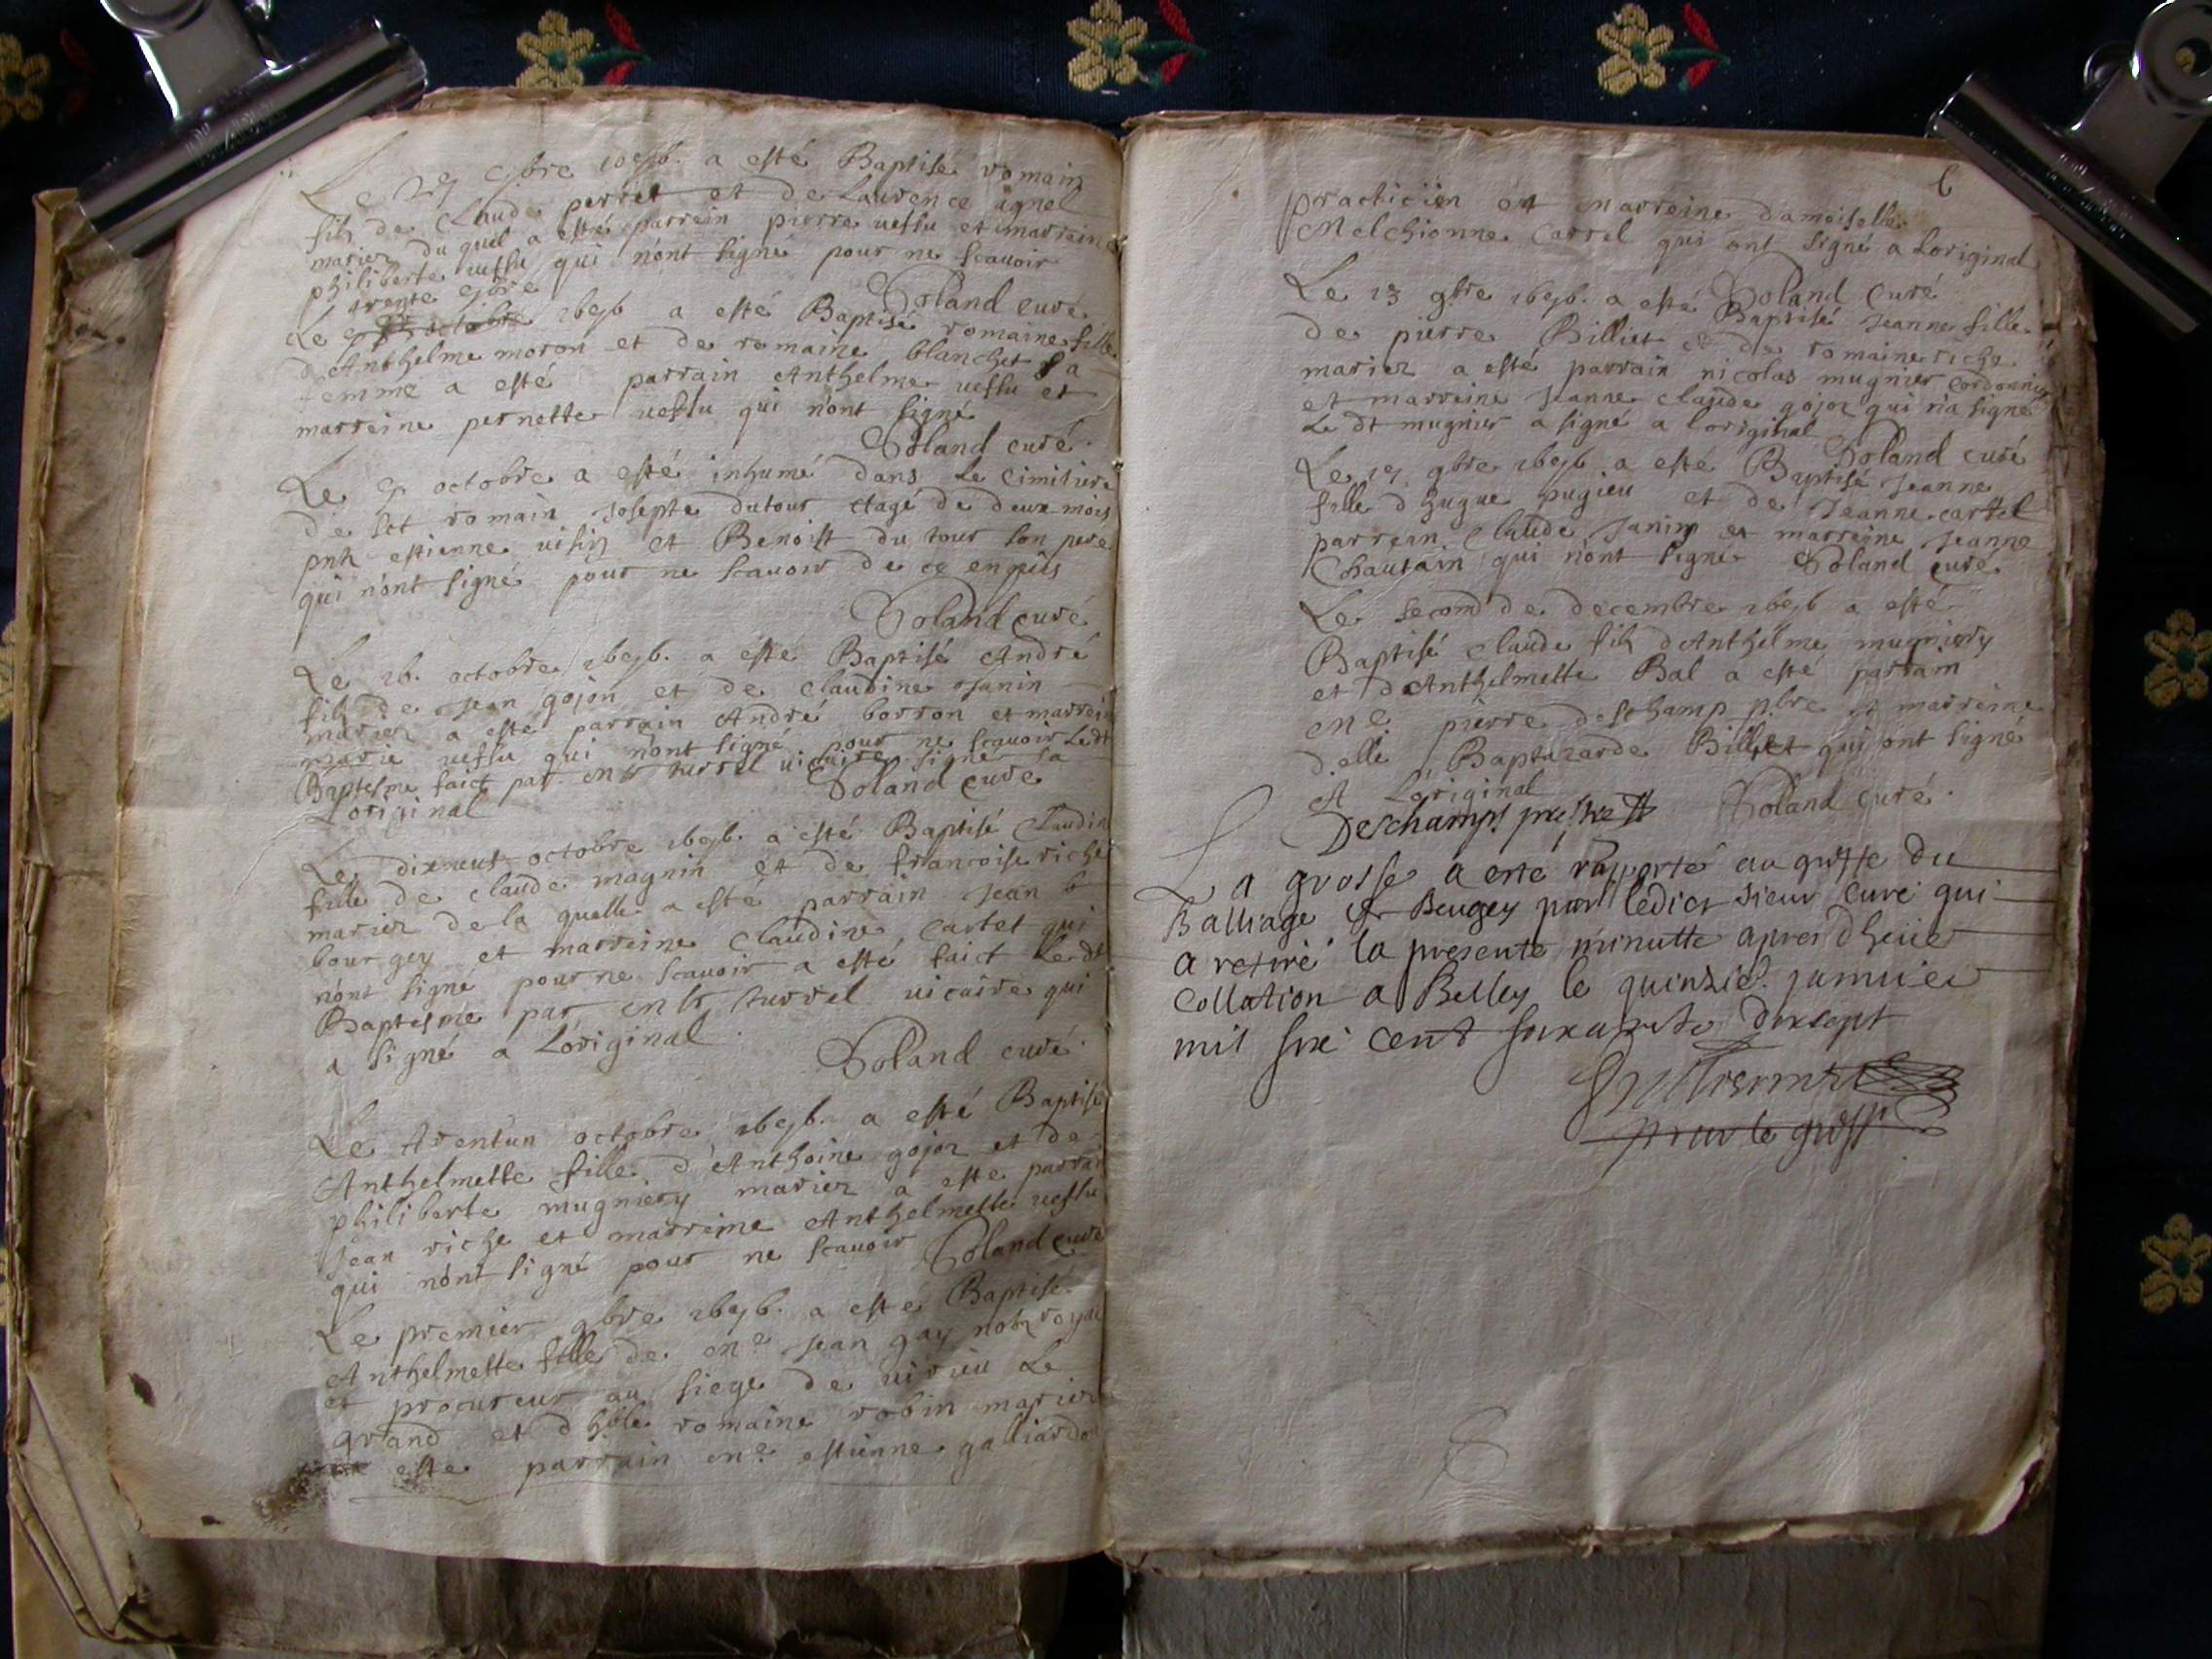 Le a esté Baptisé romain
fils de Claude perret et de Laurence agnel
mariez du quel a esté parrein pierre uessu et marreine
philiberte uessu qui nont signé pour ne scauoir
trente Soland curé
Le octobre a esté Baptisé romaine fille
d'Anthelme moron et de romaine blanchet sa
femme a esté parrain Anthelme uessu et
marreine pernette uessu qui n'ont signé
Soland curé
Le octobre a esté inhumé dans le cimitiere
de sct romain Josepte dutour de deux mois
pnts estienne et Benoist du tour son pere
qui n'ont signé pour ne scauoir de ce enquis
Soland curé
Le 16. octobre a esté Baptisé André
fils de Jean gojon et de claudine Janin
mariez a esté parrain André borron et marreine
marie uessu qui n'ont signé pour ne scauoir Ledt
Baptesme faict par turrel uicaire signé
Loriginal Soland curé
Le dixneuf octobre a esté Baptisé Claudine
fille de claude magnin et de francoise riche
mariez de la quelle a esté parrain Jean
bourgey et marreine Claudine Cartet qui
n'ont signé pour ne scauoir a esté faict Le dt
Baptesme par turrel uicaire qui
a signé a Loriginal
Soland curé
Le trentun octobre a esté Baptisé
Anthelmette fille d'Anthoine gojon et de
philiberte mugniery mariez a esté parrain
Jean riche et marreine Anthelmette uessu
qui n'ont signé pour ne scauoir Soland curé
Le premier gbre a esté Baptisé
Anthelmette fille de Jean gay royal
et procureur au siege de uirieu Le
grand et romaine robin mariez
esté parrain estienne galliardon
6
practicien et marreine damoiselle
Melchionne Carrel qui ont signé a Loriginal
Soland Curé
Le 13 gbre a esté Baptisé Jeanne fille
de pierre Billiet et de romaine riche
mariez a esté parrain nicolas mugnier cordonnier
et marreine Jeanne claude gojon qui n'a signé
Le dt mugnier a signé a l'original
Soland curé
Le gbre a esté Baptisé Jeanne
fille d'hugue pugieu et de Jeanne cartet
parrean Claude Janin et marreine Jeanne
Chautain qui n'ont signé Soland curé
Le second de decembre a esté
Baptisé claude fils d'Anthelme mugniery
et d'Anthelmette Bal a esté parrain
pierre deschamp pbre et marreine
d.elle Billiet qui ont signé
a L'original
Deschamps Soland curé
La grosse a esté rapporté au greffe du
Balliage de Beugey par ledict sieur Curé qui
a retiré la presente minutte apres dheüe
Collation a Belley le janvier
mil six cent soixante dixsept
pour le greff